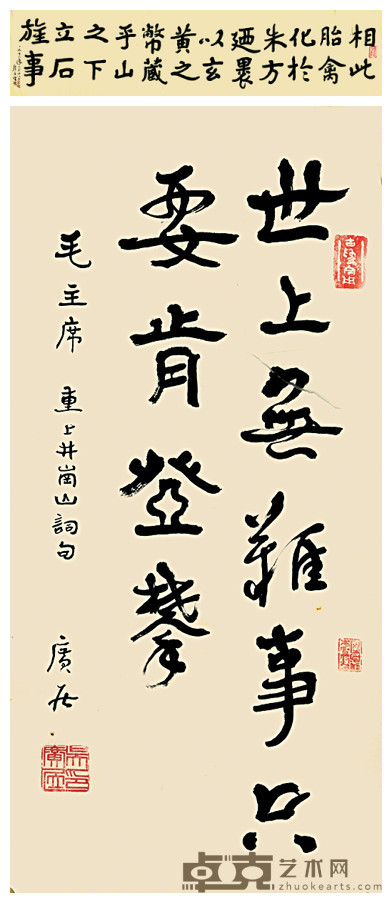 相此
胎禽
化於
朱方
廼裹
以玄
黄之
幣藏
乎山
之下
立石
旌事
世上無難事只
要肯登攀
毛主席 重上井崗山詞句 廣
卓克艺术网
zhuokearts.com